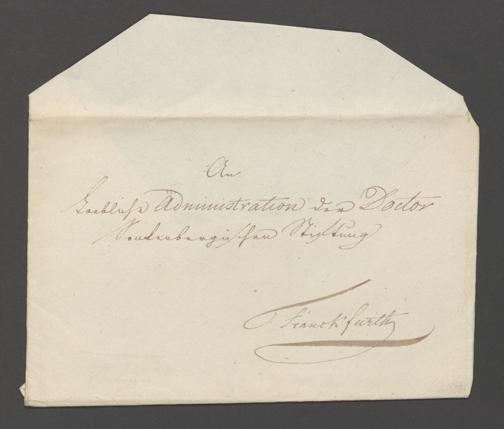 An
Loebliche Administration der Doctor
Senkenbergischen Stiftung
Franckfurth